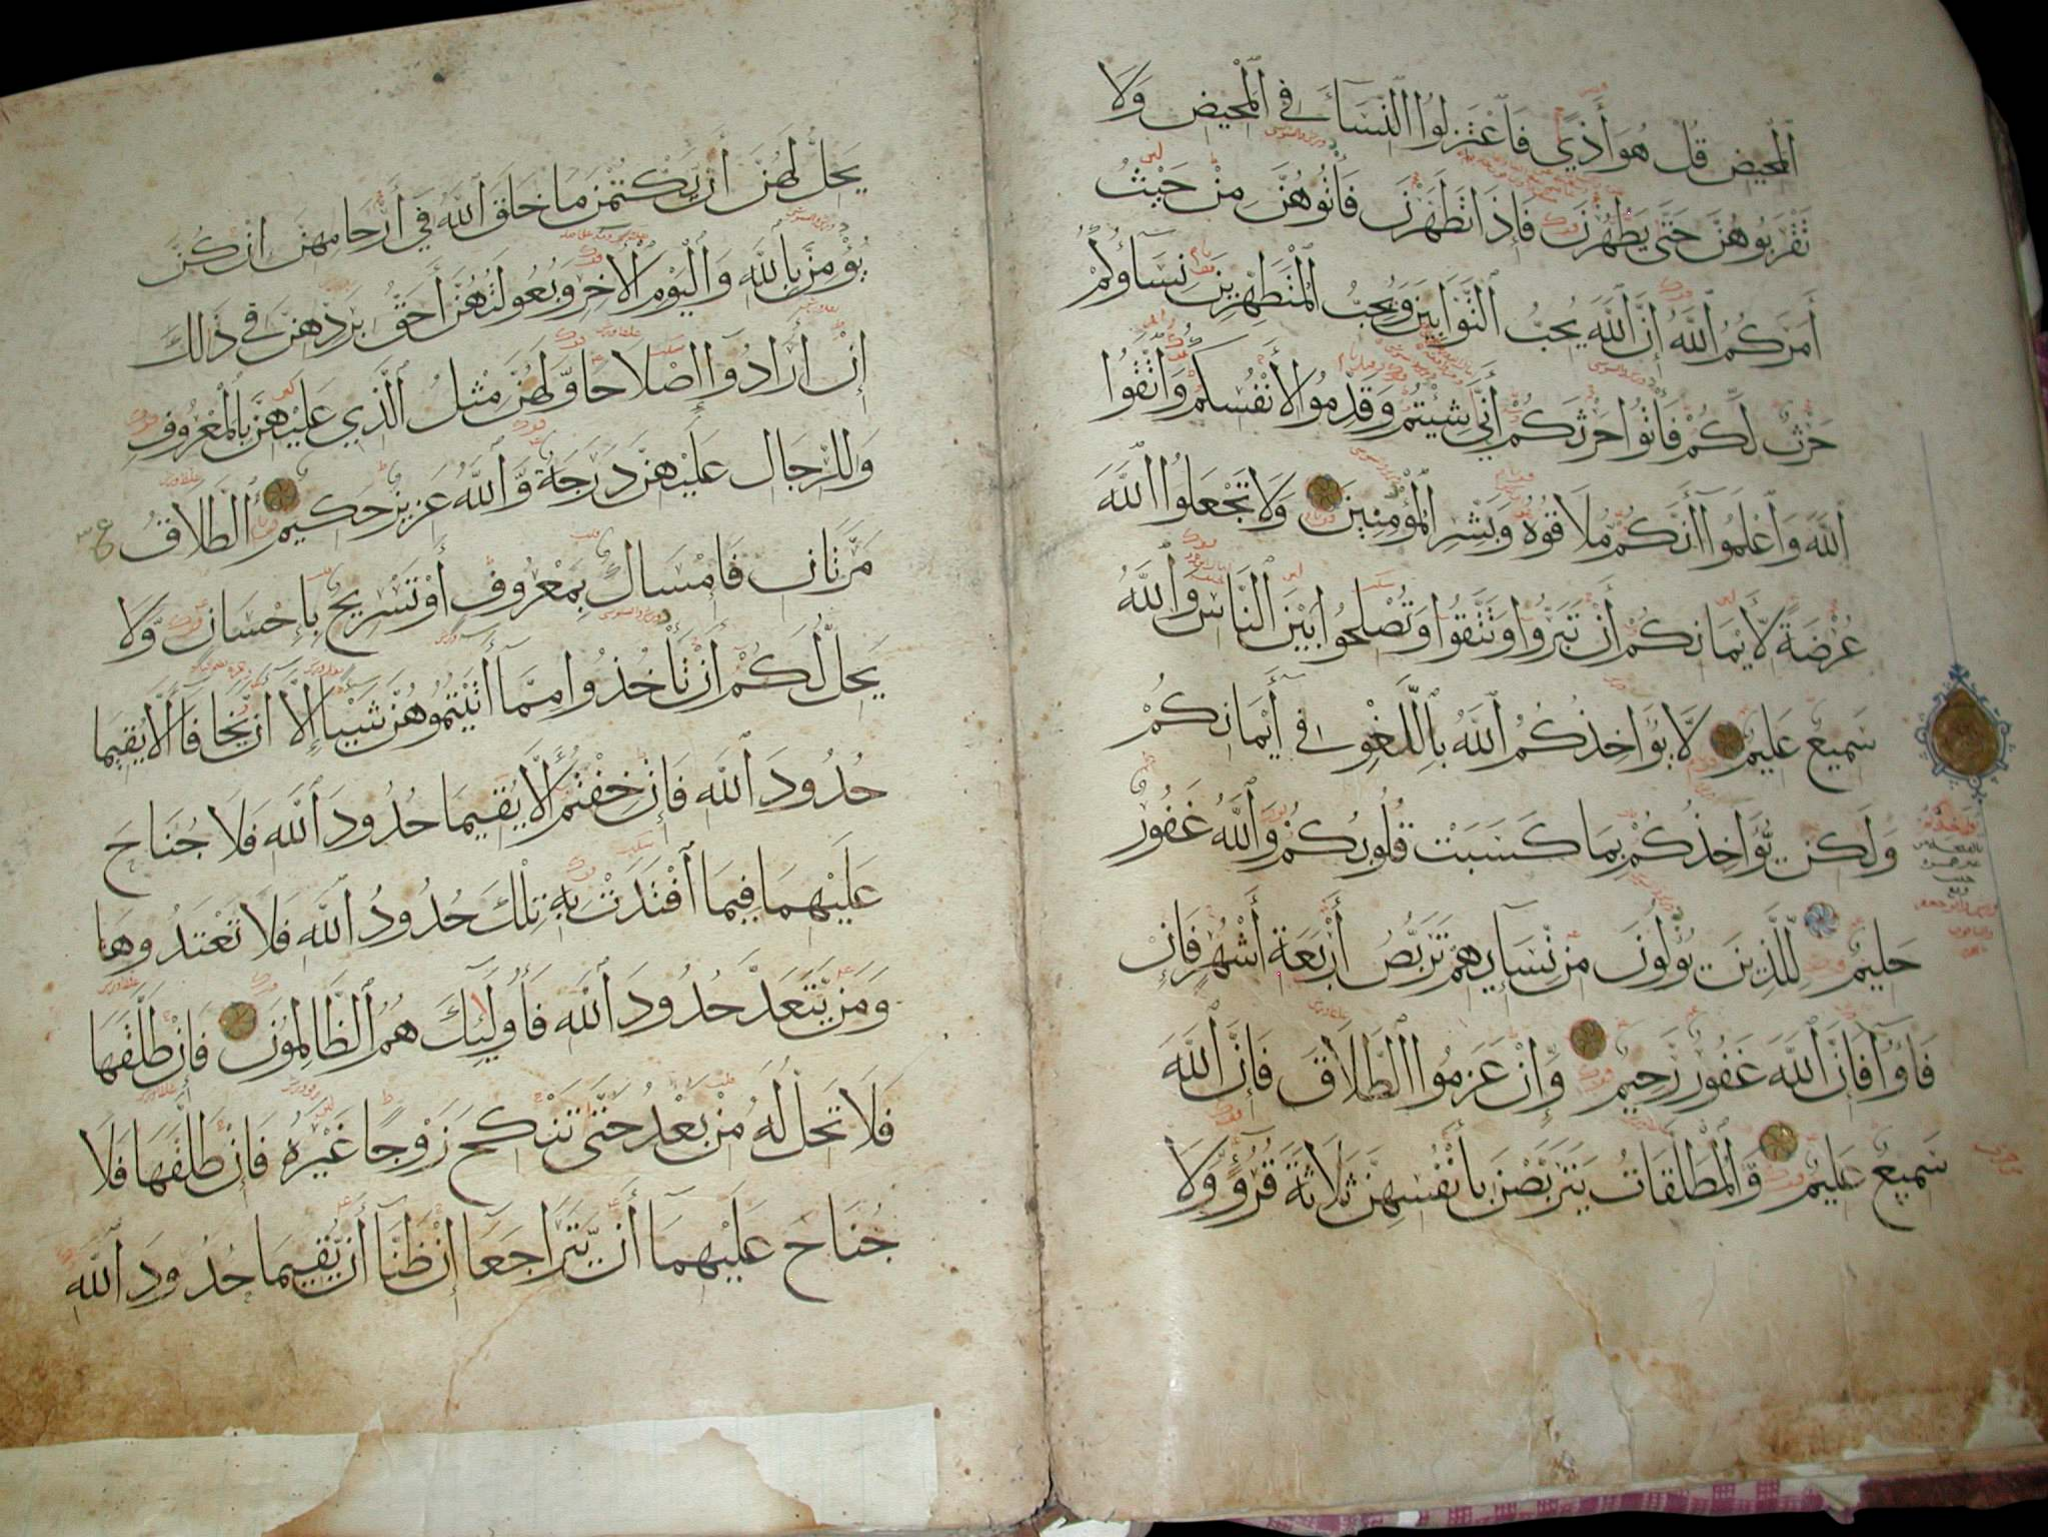 ٱلْمَحِيضِ قُلْ هُوَ أَذًي فَاعْتَزِلُوا ٱلنِّسَآءَ فِي ٱلْمَحِيضِ وَلَا
تَقْرَبُوهُنَّ حَتَّى يَطْهُرْنَ فَإِذَا تَطَهَّرْنَ فَاتُوهُنَّ مِنْ حَيْثُ
أَمَرَكُمُ ٱللَّهُ إِنَّ ٱللَّهَ يُحِبُّ ٱلتَّوَّابِينَ وَيُحِبُّ ٱلْمُتَطَهِّرِينَ نِسَآؤُكُمْ
حَرْثٌ لَّكُمْ فَاتُوا حَرْثَكُمْ أَنَّى شِيتُمْ وَقَدِّمُوا لِأَنْفُسِكُمْ وَاتَّقُوا
ٱللَّهَ وَاعْلَمُوا أَنَّكُمْ مُلَاقُوهُ وَبَشِّرِ ٱلْمُؤْمِنِينَ وَلَا تَجْعَلُوا ٱللَّهَ
عُرْضَةً لِّأَيْمَانِكُمْ أَنْ تَبَرُّوا وَتَتَّقُوا وَتُصْلِحُوا بَيْنَ ٱلنَّاسِ وَٱللَّهُ
سَمِيعٌ عَلِيمٌ لَّا يُؤَاخِذُكُمُ ٱللَّهُ بِاللَّغْوِ فِي أَيْمَانِكُمْ
وَلَكِنْ يُؤَاخِذُكُمْ بِمَا كَسَبَتْ قُلُوبُكُمْ وَٱللَّهُ غَفُورٌ
حَلِيمٌ لِلَّذِينَ يُؤْلُونَ مِنْ نِّسَآيِهِمْ تَرَبُّصُ أَرْبَعَةِ أَشْهُرٍ فَإِنْ
فَآؤُا فَإِنَّ ٱللَّهَ غَفُورٌ رَّحِيمٌ وَّإِنْ عَزَمُوا ٱلطَّلَاقَ فَإِنَّ ٱللَّهَ
سَمِيعٌ عَلِيمٌ وَّٱلْمُطَلَّقَاتُ يَتَرَبَّصْنَ بِأَنْفُسِهِنَّ ثَلَاثَةَ قُرُوءٍ وَّلَا
يَحِلُّ لَهُنَّ أَنْ يَّكْتُمْنَ مَا خَلَقَ ٱللَّهُ فِي أَرْحَامِهِنَّ إِنْ كُنَّ
يُؤْمِنَّ بِاللَّهِ وَالْيَوْمِ ٱلْأَخِرِ وَبُعُولَتُهُنَّ أَحَقُّ بِرَدِّهِنَّ فِي ذَالِكَ
إِنْ أَرَادُوا إِصْلَاحًا وَّلَهُنَّ مِثْلُ ٱلَّذِي عَلَيْهِنَّ بِالْمَعْرُوفِ
وَلِلرِّجَالِ عَلَيْهِنَّ دَرَجَةٌ وَّٱللَّهُ عَزِيزٌ حَكِيمٌ ٱلطَّلَاقُ
مَرَّتَانِ فَإِمْسَاكٌ بِمَعْرُوفٍ أَوْ تَسْرِيحٌ بِإِحْسَانٍ وَّلَا
يَحِلُّ لَكُمْ أَنْ تَأْخُذُوا مِمَّا أَتَيْتُمُوهُنَّ شَيْئًا إِلَّا أَنْ يَّخَافَا أَلَّا يُقِيمَا
حُدُودَ ٱللَّهِ فَإِنْ خِفْتُمْ أَلَّا يُقِيمَا حُدُودَ ٱللَّهِ فَلَا جُنَاحَ
عَلَيْهِمَا فِيمَا ٱفْتَدَتْ بِهِ تِلْكَ حُدُودُ ٱللَّهِ فَلَا تَعْتَدُوهَا
وَمَنْ يَّتَعَدَّ حُدُودَ ٱللَّهِ فَأُولَئِكَ هُمُ ٱلظَّالِمُونَ فَإِنْ طَلَّقَهَا
فَلَا تَحِلُّ لَهُ مِنْ بَعْدُ حَتَّى تَنْكِحَ زَوْجًا غَيْرَهُ فَإِنْ طَلَّقَهَا فَلَا
جُنَاحَ عَلَيْهِمَا أَنْ يَّتَرَاجَعَا إِنْ ظَنَّا أَنْ يُّقِيمَا حُدُودَ ٱللَّهِ